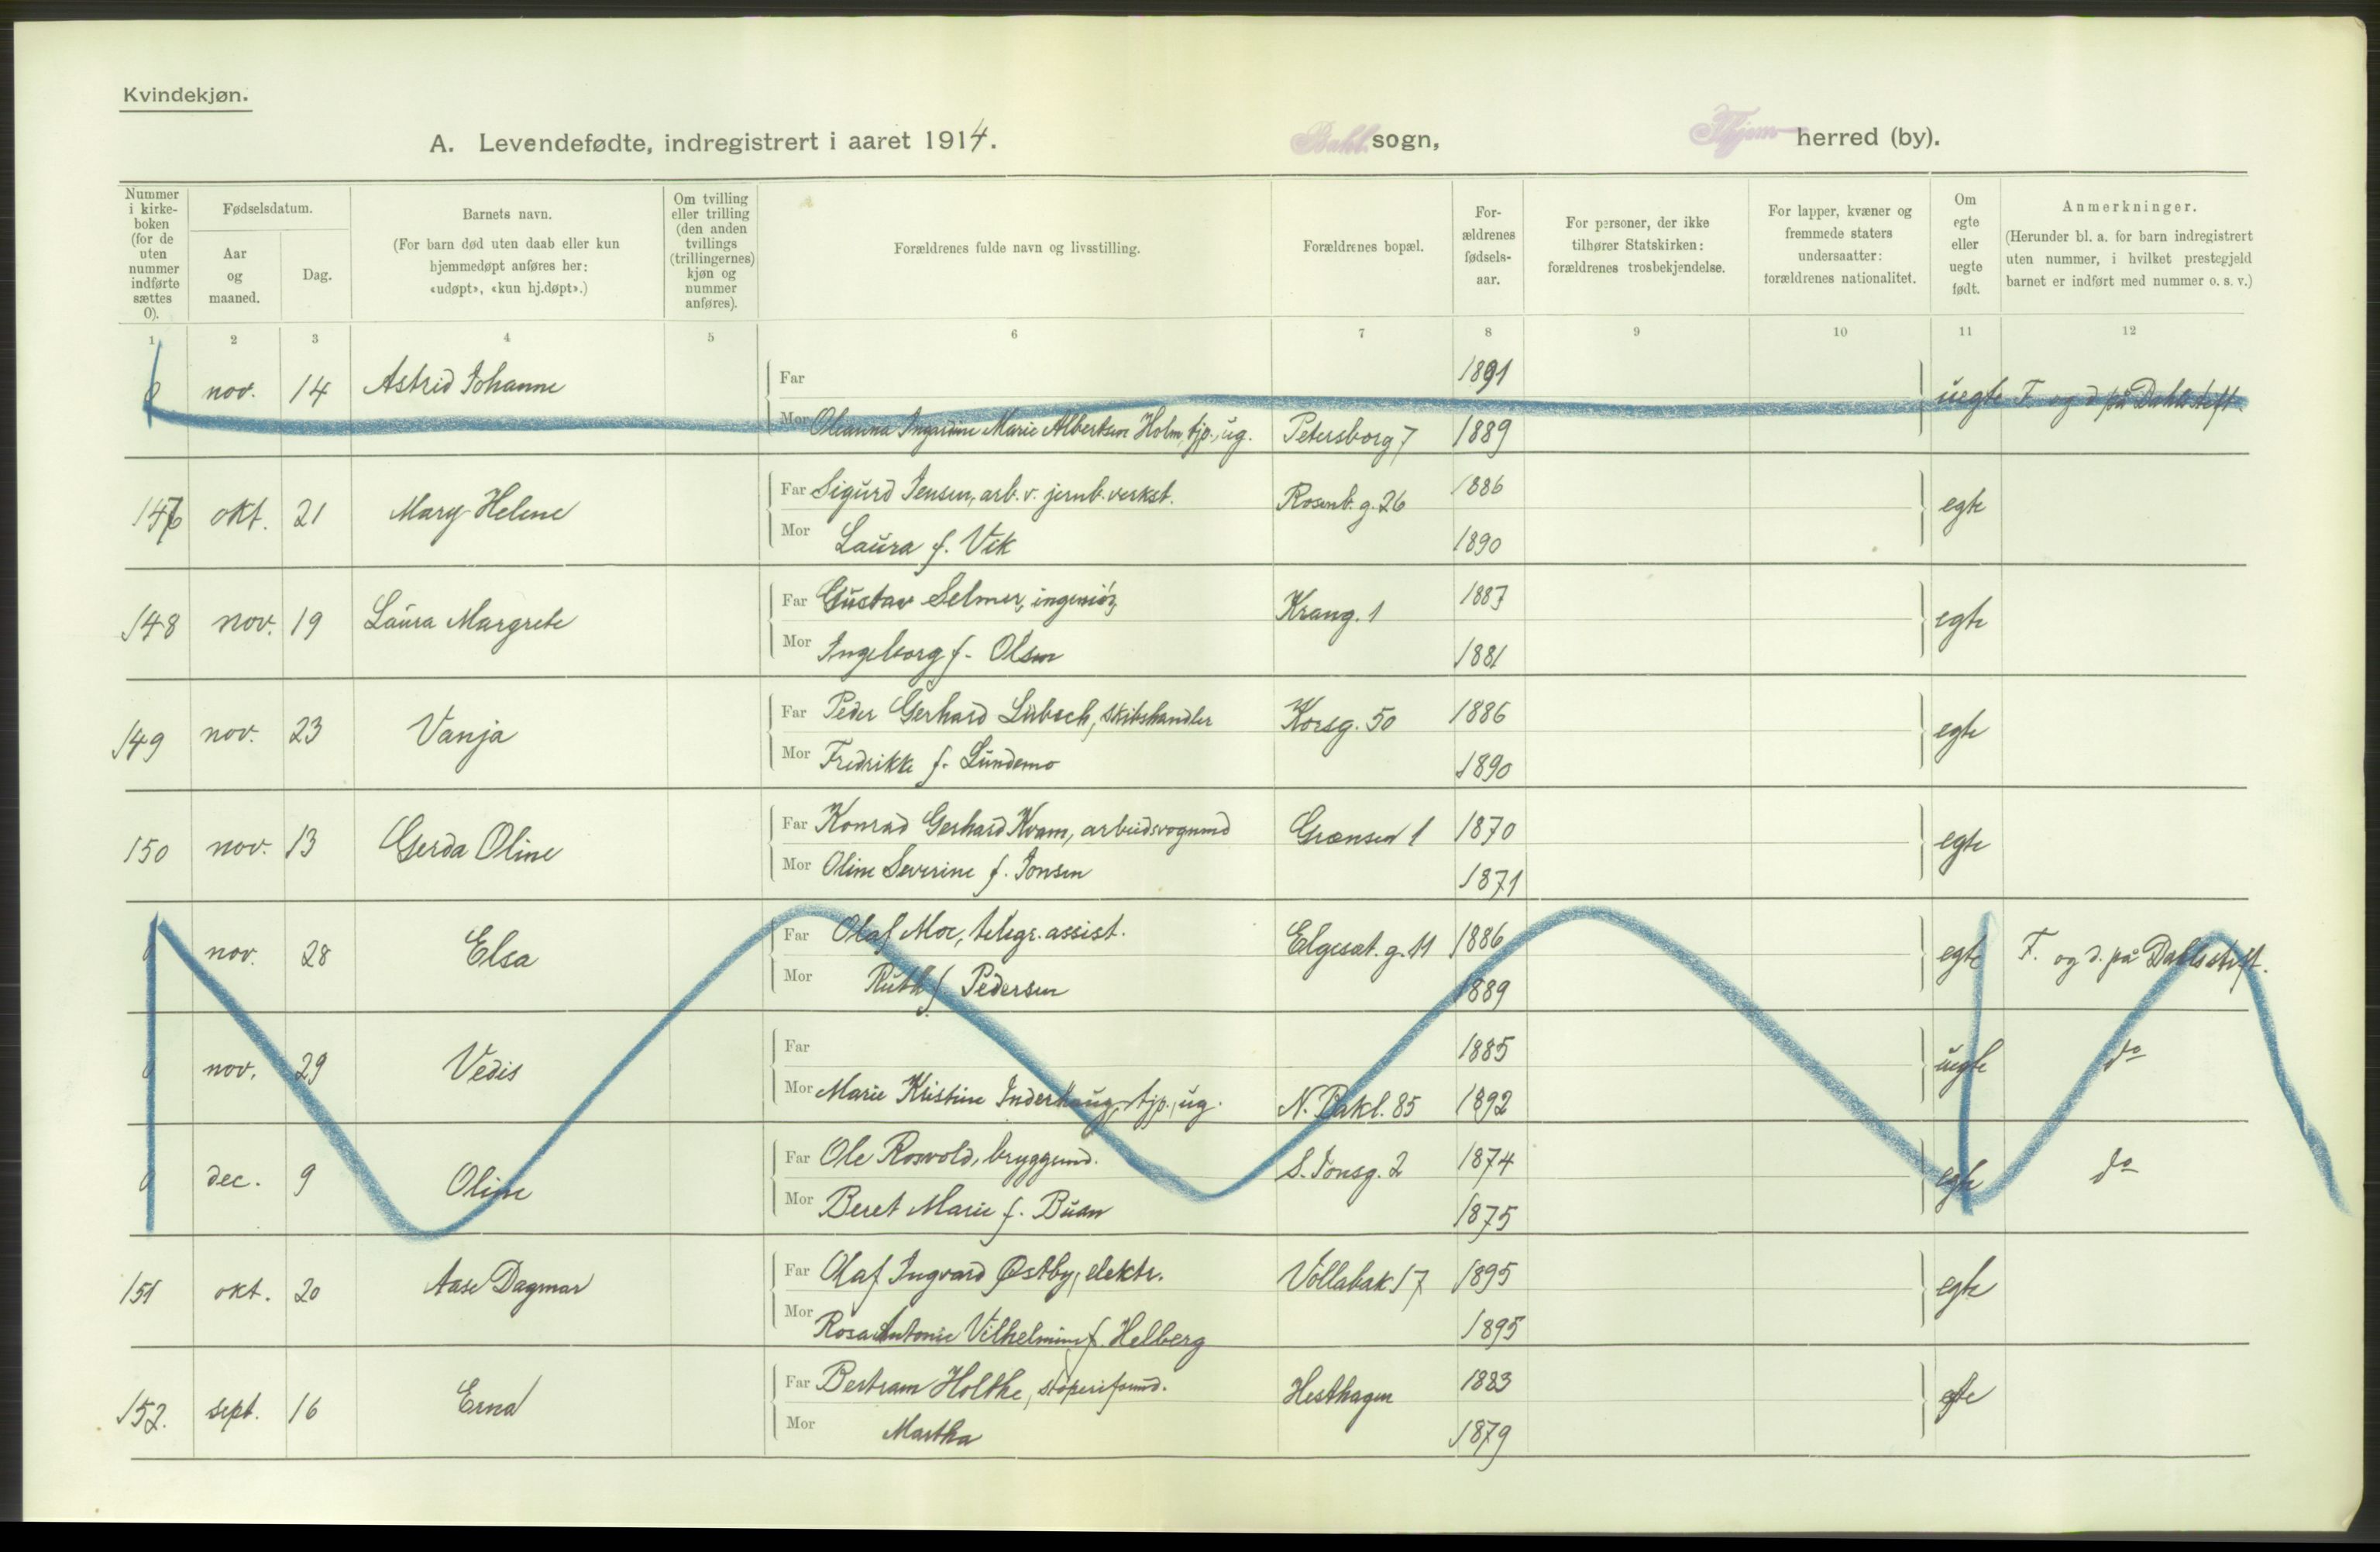 Kvindekjøn.
A. Levendefødte, indregistrert i aaret 1914.
Bakl. sogn,
Thjem herred (by).
Nummer i kirke-boken (for de uten nummer indførte sættes 0).
Fødselsdatum.
Aar og maaned.
Dag.
Barnets navn.
(For barn død uten daab eller kun hjemmedøpt anføres her: «udøpt», «kun hj.døpt».)
Om tvilling eller trilling (den anden tvillings (trillingernes) kjøn og nummer anføres).
Forældrenes fulde navn og livsstilling.
Forældrenes bopæl.
For-ældrenes fødsels-aar.
For personer, der ikke tilhører Statskirken: forældrenes trosbekjendelse.
For lapper, kvæner og fremmede staters undersaatter: forældrenes nationalitet.
Om egte eller uegte født.
Anmerkninger.
(Herunder bl. a. for barn indregistrert uten nummer, i hvilket prestegjeld barnet er indført med nummer o. s. v.)
1 2 3 4 5 6 7 8 9 10 11 12
0 nov. 14 Astrid Johanne Far 1891 uegte F. og d. på Dahls stift
Mor Oleanna Ingardine Marie Albertsen Holm, tjp., ug. Petersborg 7 1889
147 okt. 21 Mary Helene Far Sigurd Jensen, arb. v. jernb. verkst. Rosenb. g. 26 1886 egte
Mor Laura f. Vik 1890
148 nov. 19 Laura Margrete Far Gustav Selmer, ingeniør, Krang. 1 1887 egte
Mor Ingeborg f. Olsen 1881
149 nov. 23 Vanja Far Peder Gerhard Lübech, skibshandler Korsg. 50 1886 egte
Mor Fredrikke f. Lundemo 1890
150 nov. 13 Gerda Oline Far Konrad Gerhard Kvam, arbeidsvognmd Grænsen 1 1870 egte
Mor Oline Severine f. Jonsen 1871
0 nov. 28 Elsa Far Olaf Moe, telegr. assist. Elgesæt. g. 11 1886 egte F. og d. på Dahls stift.
Mor Ruth f. Pedersen 1889
0 nov. 29 Vedis Far 1885 uegte do
Mor Marie Kristine Inderhaug, tjp., ug. N. Bakl. 85 1892
0 dec. 9 Oline Far Ole Rosvold, bryggemd. S. Jonsg. 2 1874 egte do
Mor Beret Marie f. Buan 1875
151 okt. 20 Aase Dagmar Far Olaf Ingvard Østby, elektr. Vollabak 17 1895 egte
Mor Rosa Antonie Vilhelmine f. Helberg 1895
152. sept. 16 Erna Far Bertram Holthe, støperiformd. Hesthagen 1883 egte
Mor Martha 1879